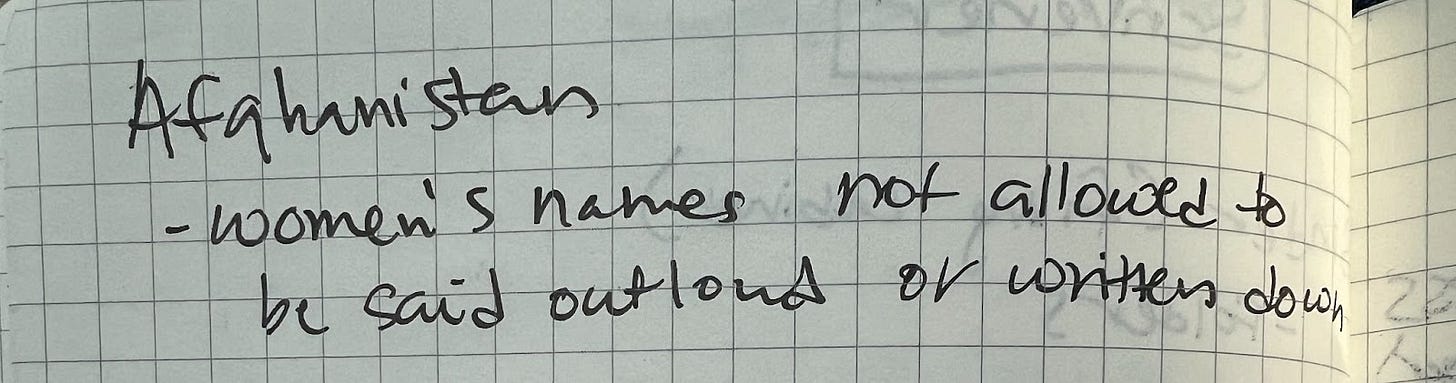 Afghanistan
- women's names not allowed to
be said outloud or written down